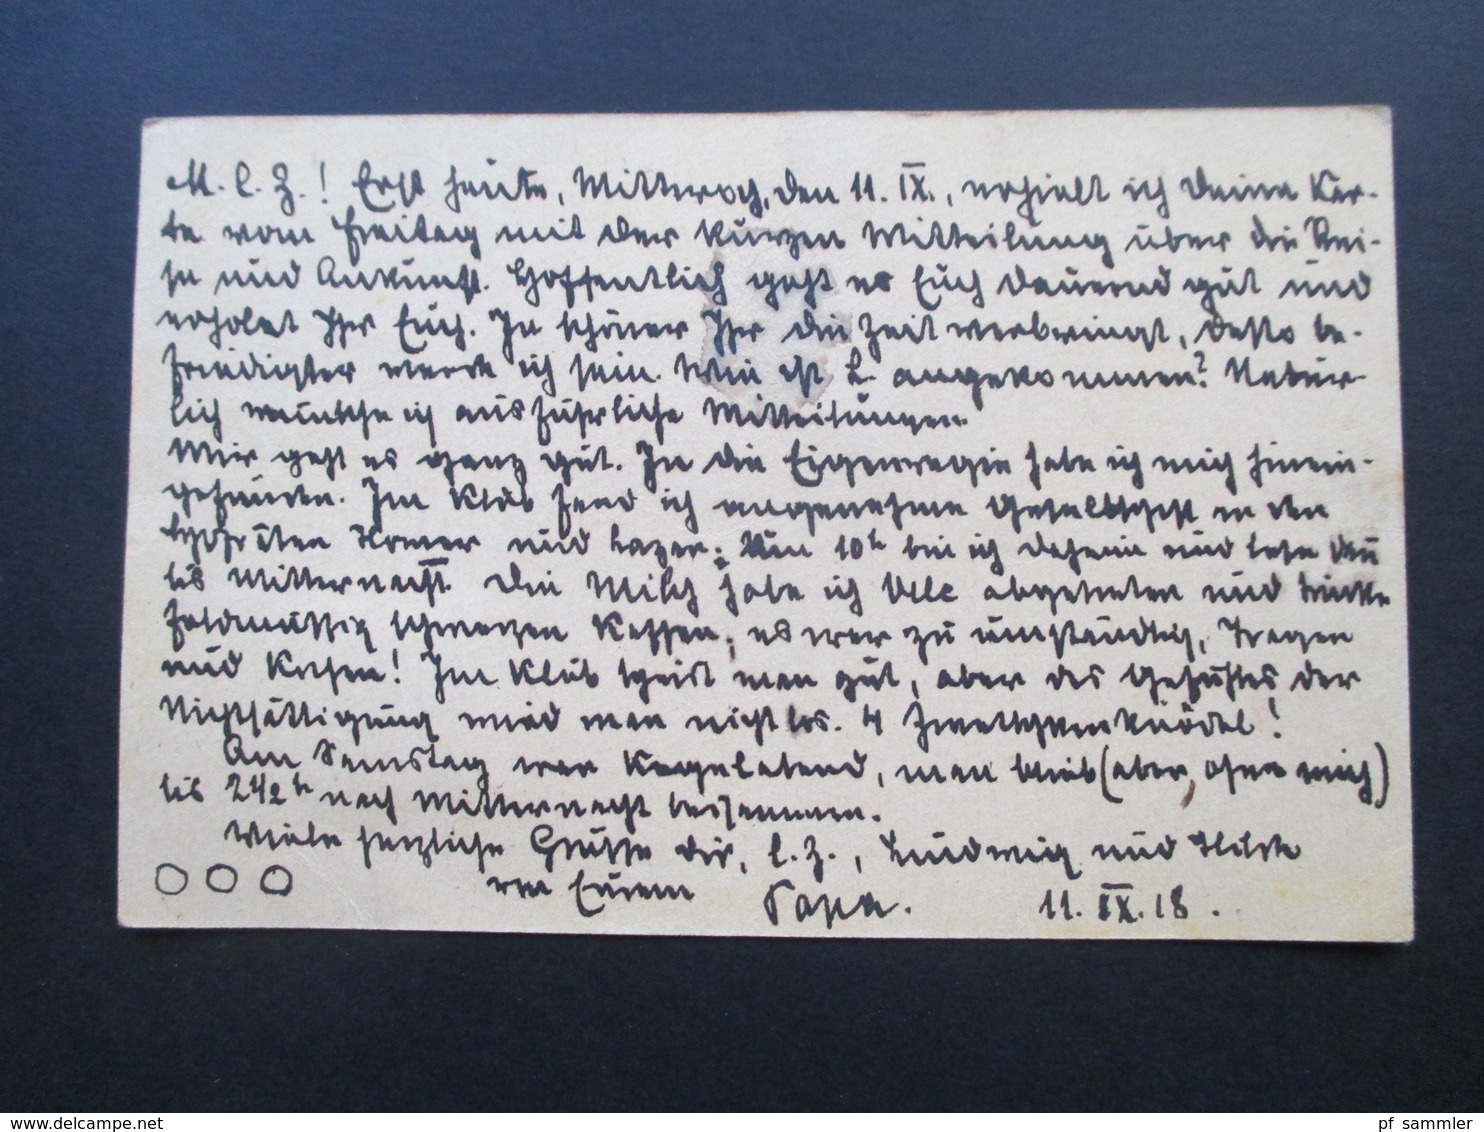 M. l. Z.! Erst heute, Mittwoch, den 11. IX., erhielt ich Deine Kar-
te vom Freitag mit der kurzen Mitteilung über die Rei-
se und Ankunft. Hoffentlich geht es Euch dauernd gut und
erholet Ihr Euch. Je schöner Ihr die Zeit verbringt, desto be-
friedigter werde ich sein. Wie ist L. angekommen? Natür-
lich wünsche ich ausführliche Mitteilungen.
Mir geht es ganz gut. In die Eigenregie habe ich mich hinein-
gefunden. Im Klub fand ich angenehme Gesellschaft in den
und Lazar. Um 10h bin ich daheim und lese dann
bis Mitternacht. Die Milch habe ich abgetreten und trinke
feldmäßig schwarzen Kaffee, es war zu umständlich, Tragen
und Kochen! Im Klub speist man gut, aber das Gefühl des der
Nichtsättigung wird man nicht los. 4 Zwetschgenknödel!
Am Samstag war Kegelabend, man blieb (aber, ohne mich)
bis 2 h nach Mitternacht beisammen.
Viele herzliche Grüße Dir, l. Z., Ludwig und
von Eurem Papa. 11. IX. 18.
pf sammler
delcampe.net